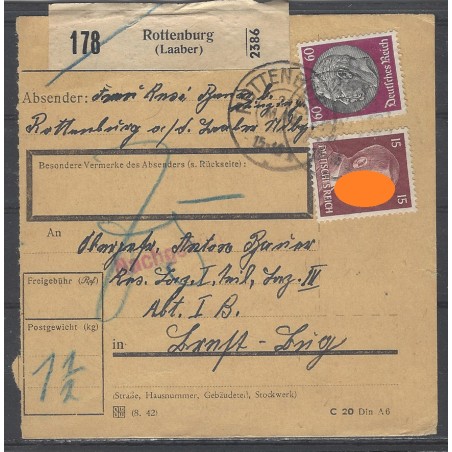 178
Rottenburg
(Laaber)
2386
60
60
Deutsches Reich
Absender: Frau Rosa
Rottenburg a/d. Laaber Ndby.
15
15
DEUTSCHES REICH
Besondere Vermerke des Absenders (s. Rückseite):
An
Obergefr. Anton Bauer
Res. Laz. I, Teil, Laz. IV
Abt. I B.
Freigebühr (Rpf)
Postgewicht (kg)
1 1/2
in
(Straße, Hausnummer, Gebäudeteil, Stockwerk)
(8. 42)
C 20 Din A6